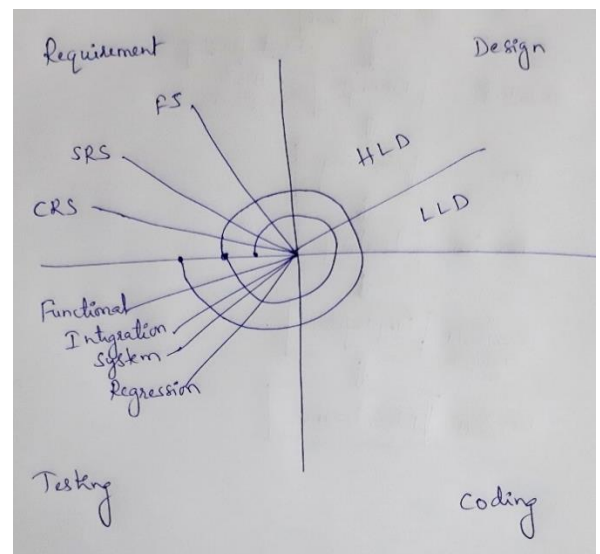 Requirement
Design
FS
HLD
SRS
LLD
CRS
Functional
Integration
System
Regression
Testing
Coding